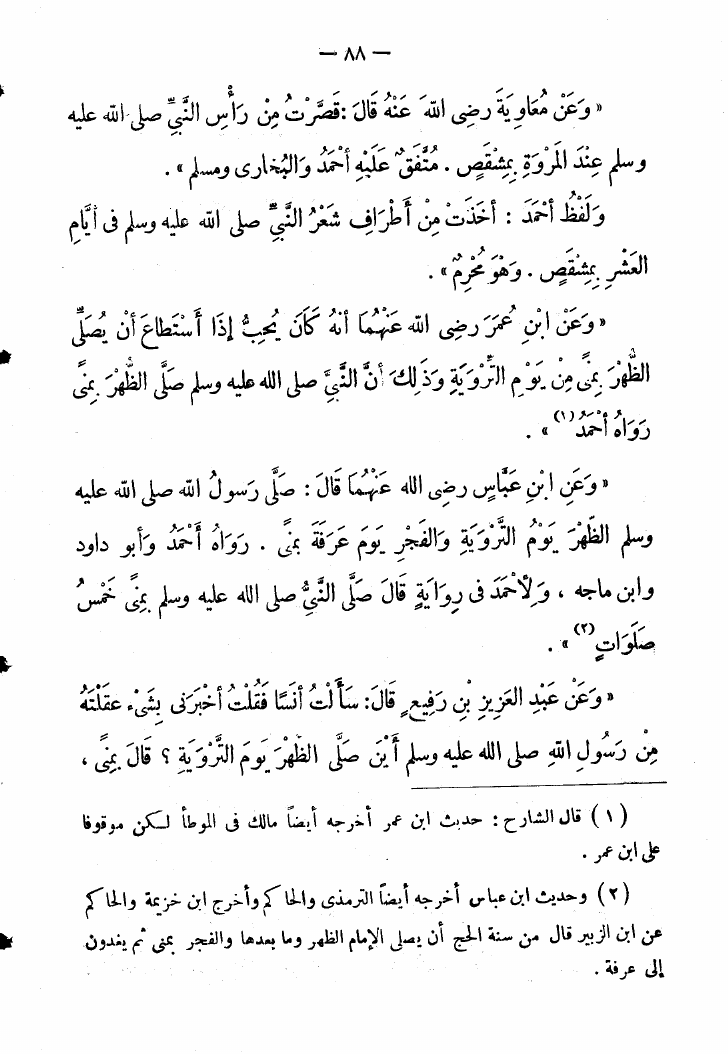 — ٨٨ —
« وَعَنْ مُعَاوِيَةَ رضى اللهَ عَنْهُ قَالَ : قَصَّرْتُ مِنْ رَأْسِ النَّبِىِّ صلى الله عليه
وسلم عِنْدَ المَرْوَةِ بِمِشْقَصٍ . مُتَّفَقٌ عَلَيْهِ أحْمَدُ وَالبُخارى ومسلم » .
وَلَفْظُ أحْمَدَ : أخَذَتْ مِنْ أَطْرَافِ شَعْرُ النَّبِىِّ صلى الله عليه وسلم فى أيَّامِ
العَشْرِ بِمِشْقَصٍ . وَهْوَ مُحْرِمٌ » .
« وَعَنْ ابْنِ عُمَرَ رضى الله عَنْهُمَا أنهُ كَانَ يُحِبُّ إذَا أَسْتطَاعَ أنْ يُصَلِّىَ
الظُّهْرَ بِمِنًى مِنْ يَوْمِ التَّرْوِيَةِ وَذَلِكَ أنَّ النَّبِىَّ صلى الله عليه وسلم صَلَّى الظُهْرَ بِمِنًى
رَوَاهُ أحْمَدُ (١) » .
« وَعَنِ ابْنِ عَبَّاسٍ رضى الله عَنْهُمَا قَالَ : صَلَّى رَسولُ الله صلى الله عليه
وسلم الظُّهْرَ يَوْمُ التَّرْوَيَةِ وَالفَجْرِ يَومَ عَرَفَةَ بمنًى . رَوَاهُ أحْمَدُ وَأبو داود
وابن ماجه ، وَلِأحْمَدَ فى رِوَايَةٍ قَالَ صَلَّى النَّبىُّ صلى الله عليه وسلم بِمِنًى خَمْسُ
صَلَوَاتٍ (٢) » .
« وَعَنْ عَبْدِ العَزِيزِ بْنِ رَفِيعٍ قَالَ: سَأَلْتُ أنَسًا فَقُلْتُ أخْبَرَنى بِشَىْءٍ عقَلْتَهُ
مِنْ رَسُولِ اللهِ صلى الله عليه وسلم أَيْنَ صَلَّى الظُهْرَ يَومَ التَّرْوِيَةِ ؟ قَالَ بِمِنًى ،
(١) قال الشارح : حديث ابن عمر أخرجه أيضاً مالك فى الموطأ لكن موقوفا
على ابن عمر .
(٢) وحديث ابن عباس أخرجه أيضاً الترمذى والحاكم وأخرج ابن خزيمة والحاكم
عن ابن الزبير قال من سنة الحج أن يصلى الإمام الظهر وما بعدها والفجر بمنى ثم يغدون
إلى عرفة .